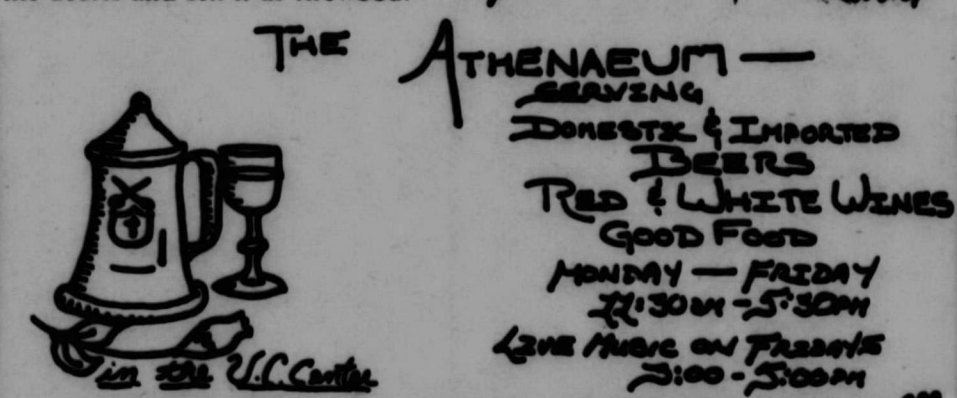 THE ATHENAEUM —
SERVING
DOMESTIC & IMPORTED
BEERS
RED & WHITE WINES
GOOD FOOD
MONDAY — FRIDAY
11:30AM - 5:30PM
LIVE MUSIC ON FRIDAYS
3:00 - 5:00PM
in the U.C. Center